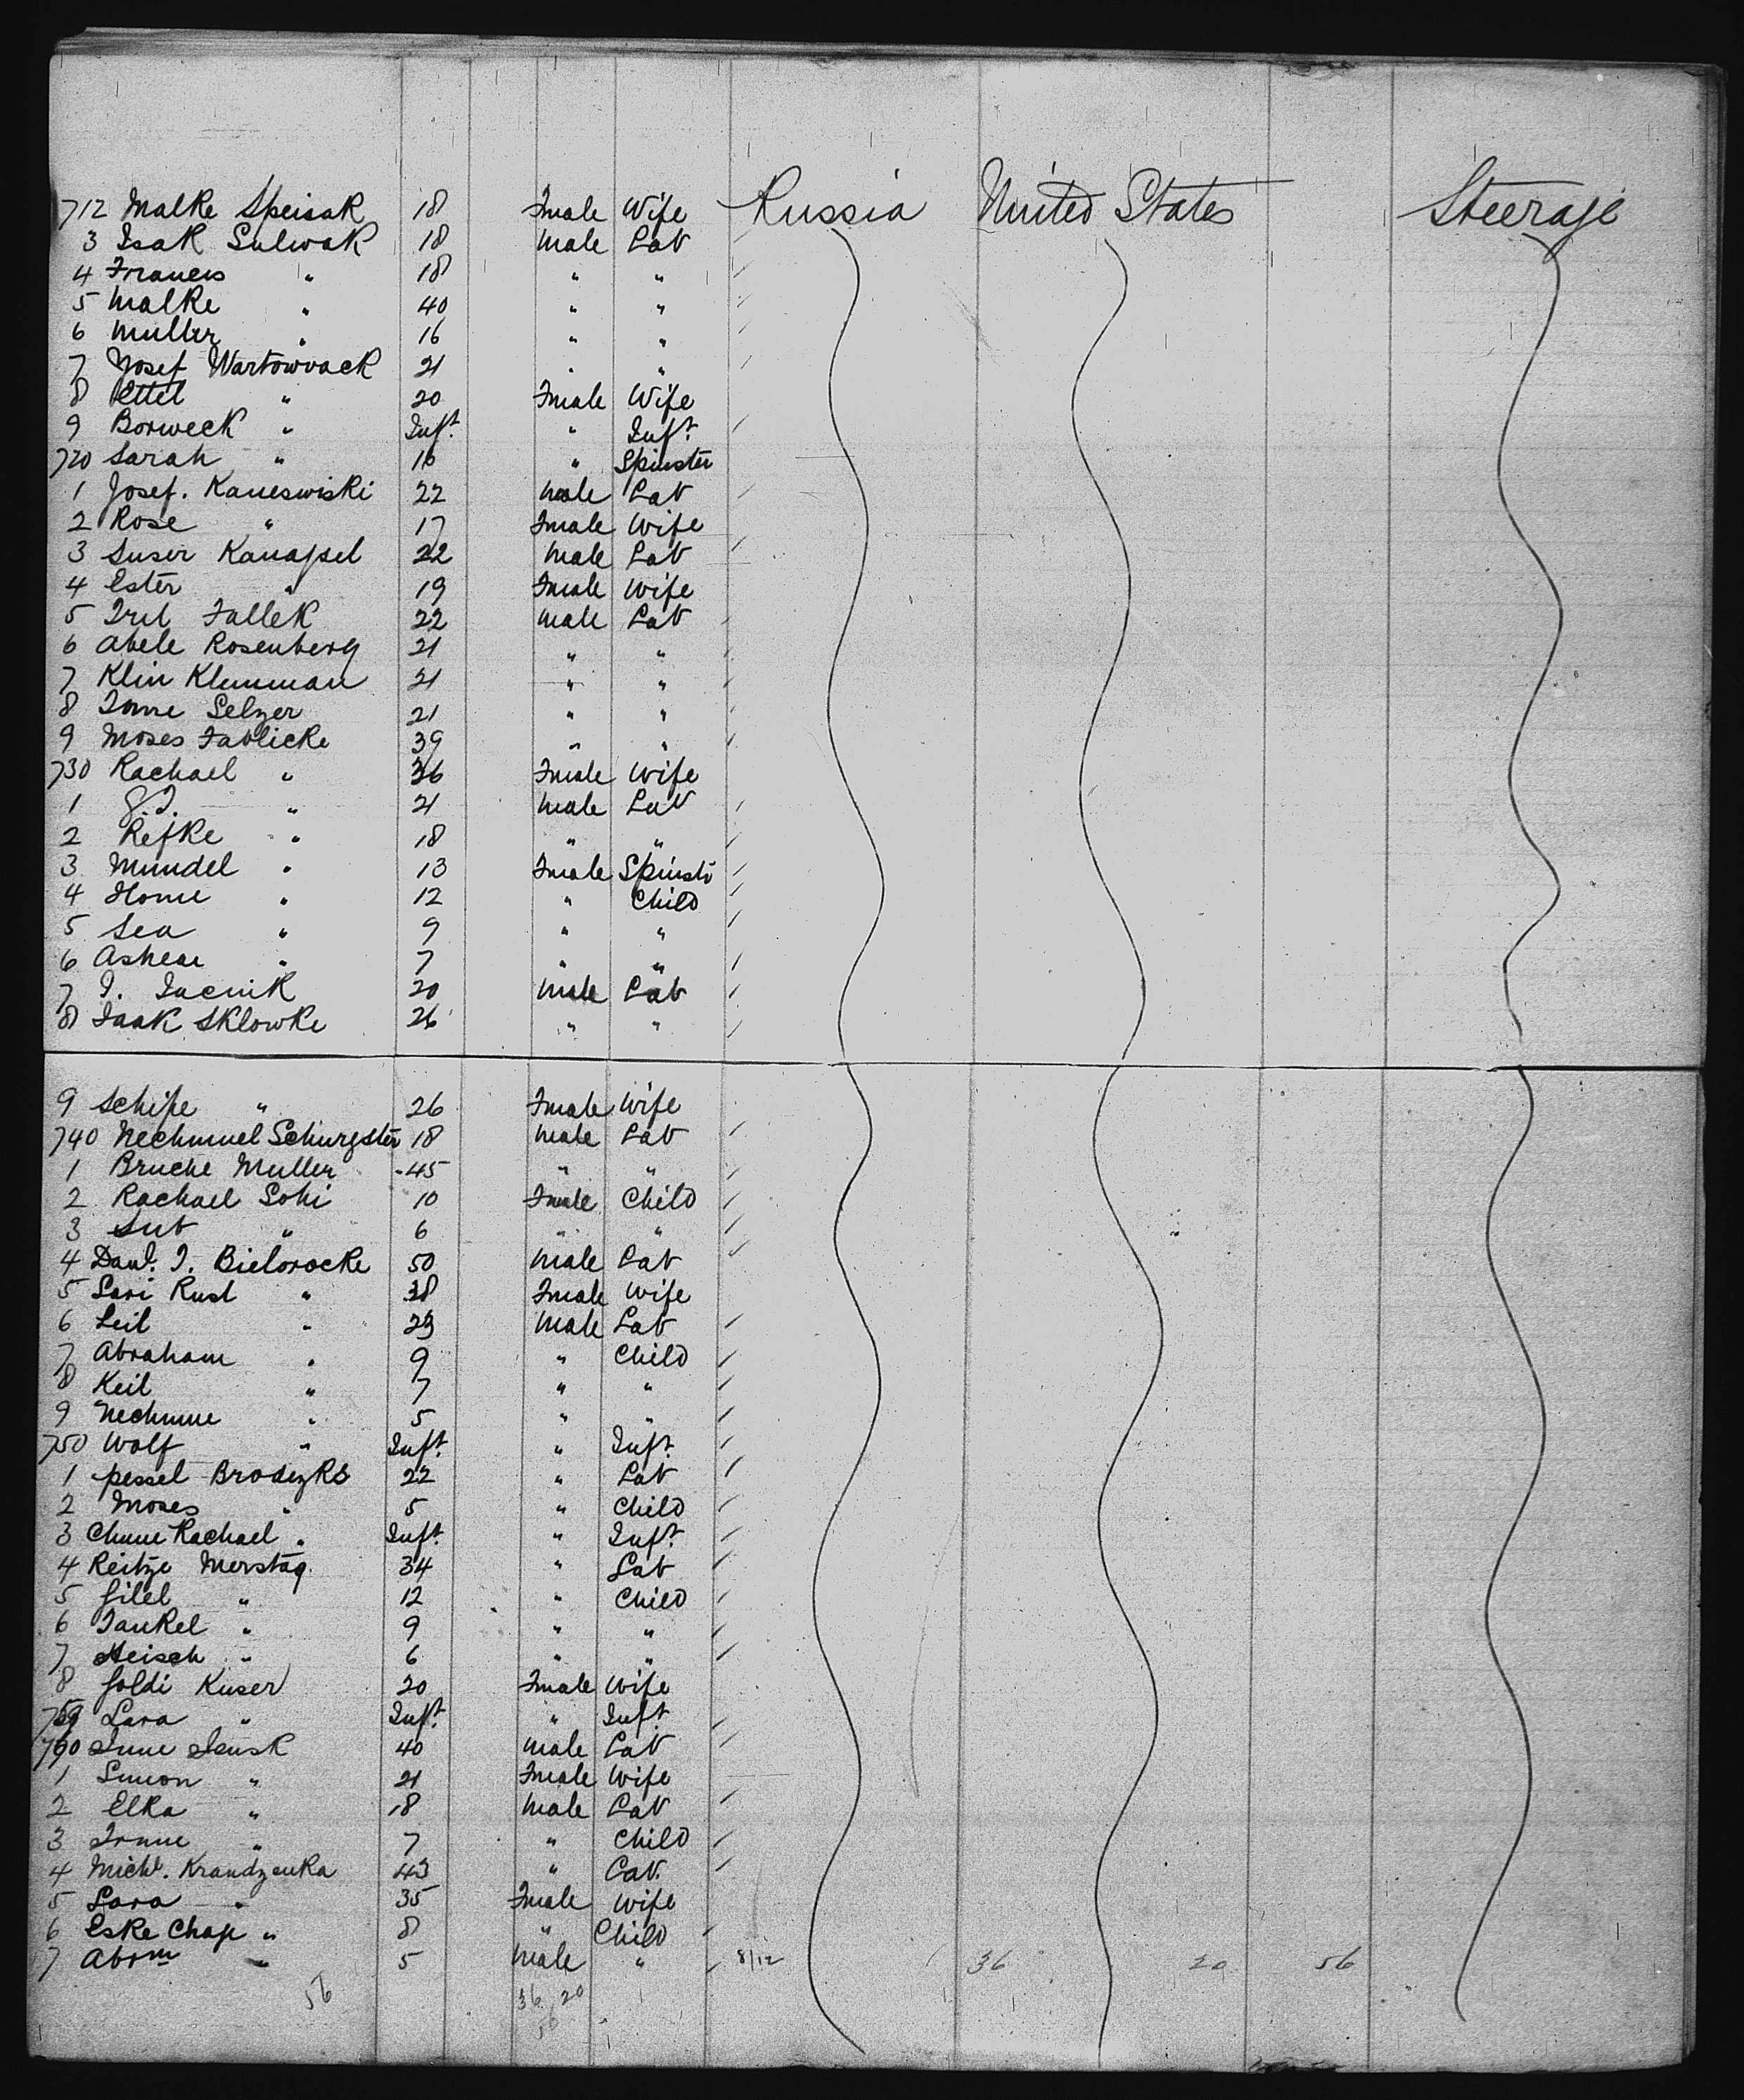 712 Malke Speisak 18 Fmale Wife Russia United States Steerage
3 Isak Sulwak 18 Male Lab
4 Francis " 18 " "
5 Malke " 40 " "
6 Muller " 16 " "
7 Josef Wartowvack 21 " "
8 Ettel " 20 Fmale Wife
9 Borweck " Inft. " Inft.
720 Sarah " 16 " Spinster
1 Josef. Kaneswiski 22 Male Lab
2 Rose " 17 Fmale Wife
3 Suser Kanapel 22 Male Lab
4 Ester " 19 Fmale Wife
5 Iril Fallek 22 Male Lab
6 Abele Rosenberg 21 " "
7 Klin Klinman 21 " "
8 Selzer 21 " "
9 Moses Fablicke 39 " "
730 Rachael " 36 Fmale Wife
1 " 21 Male Lab
2 Rifke " 18 " "
3 Mundel " 13 Fmale Spinstr
4 Home " 12 " Child
5 Sea " 9 " "
6 Ashear " 7 " "
7 I. 20 Male Lab
8 Isak Sklowke 26 " "
9 Schipe " 26 Fmale Wife
740 Nechmuel Schurgster 18 Male Lab
1 Bruche Muller 45 " "
2 Rachael Sohi 10 Fmale Child
3 Sub " 6 " "
4 Danl. I. Bielorocke 50 Male Lab
5 Sari Rusl " 38 Fmale Wife
6 Leib " 23 Male Lab
7 Abraham " 9 " Child
8 Keil " 7 " "
9 Nechmue " 5 " "
750 Wolf " Inft. " Inft.
1 Pessel Brodezks 22 " Lab
2 Moses " 5 " Child
3 Chune Rachael " Inft. " Inft.
4 Reitze Merstag 34 " Lab
5 Gilel " 12 " Child
6 Jankel " 9 " "
7 Heisch " 6 " "
8 Goldi Kuser 20 Fmale Wife
759 Sara " Inft. " Inft
760 40 Male Lab
1 Simon " 21 Fmale Wife
2 Elka " 18 Male Lab
3 " 7 " Child
4 Michl. Krandzenka 43 " Lab.
5 Sara " 35 Fmale Wife
6 Eske Chaje " 8 " Child
7 Abrm " 5 Male " 8/12 36 20 56
56 36 20
56